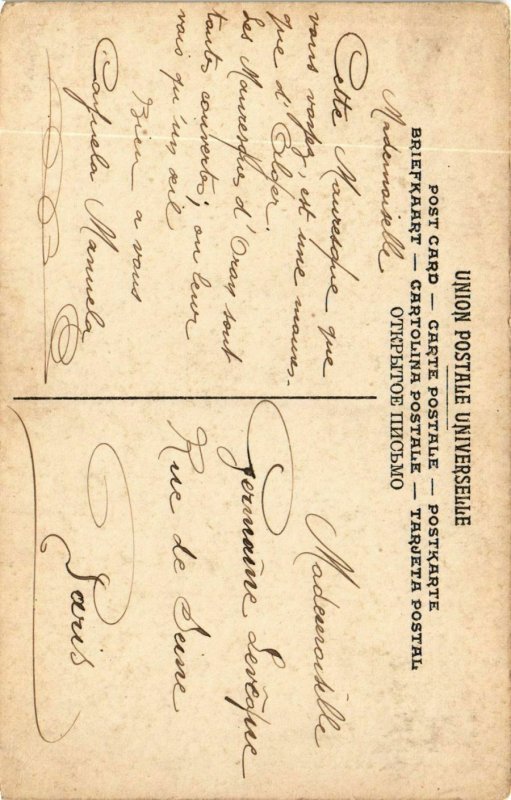 UNION POSTALE UNIVERSELLE
POST CARD — CARTE POSTALE — POSTKARTE
BRIEFKAART — CARTOLINA POSTALE — TARJETA POSTAL
ОТКРЫТОЕ ПИСЬМО
Mademoiselle
Cette Mauresque que
vous voyez, est une maures-
que d'Alger.
Les Mauresques d'Oran sont
toutes couvertes; on leur
vois qu'un œil
Bien a vous
Manuela
Mademoiselle
Germaine Levêque
Rue de Seine
Paris